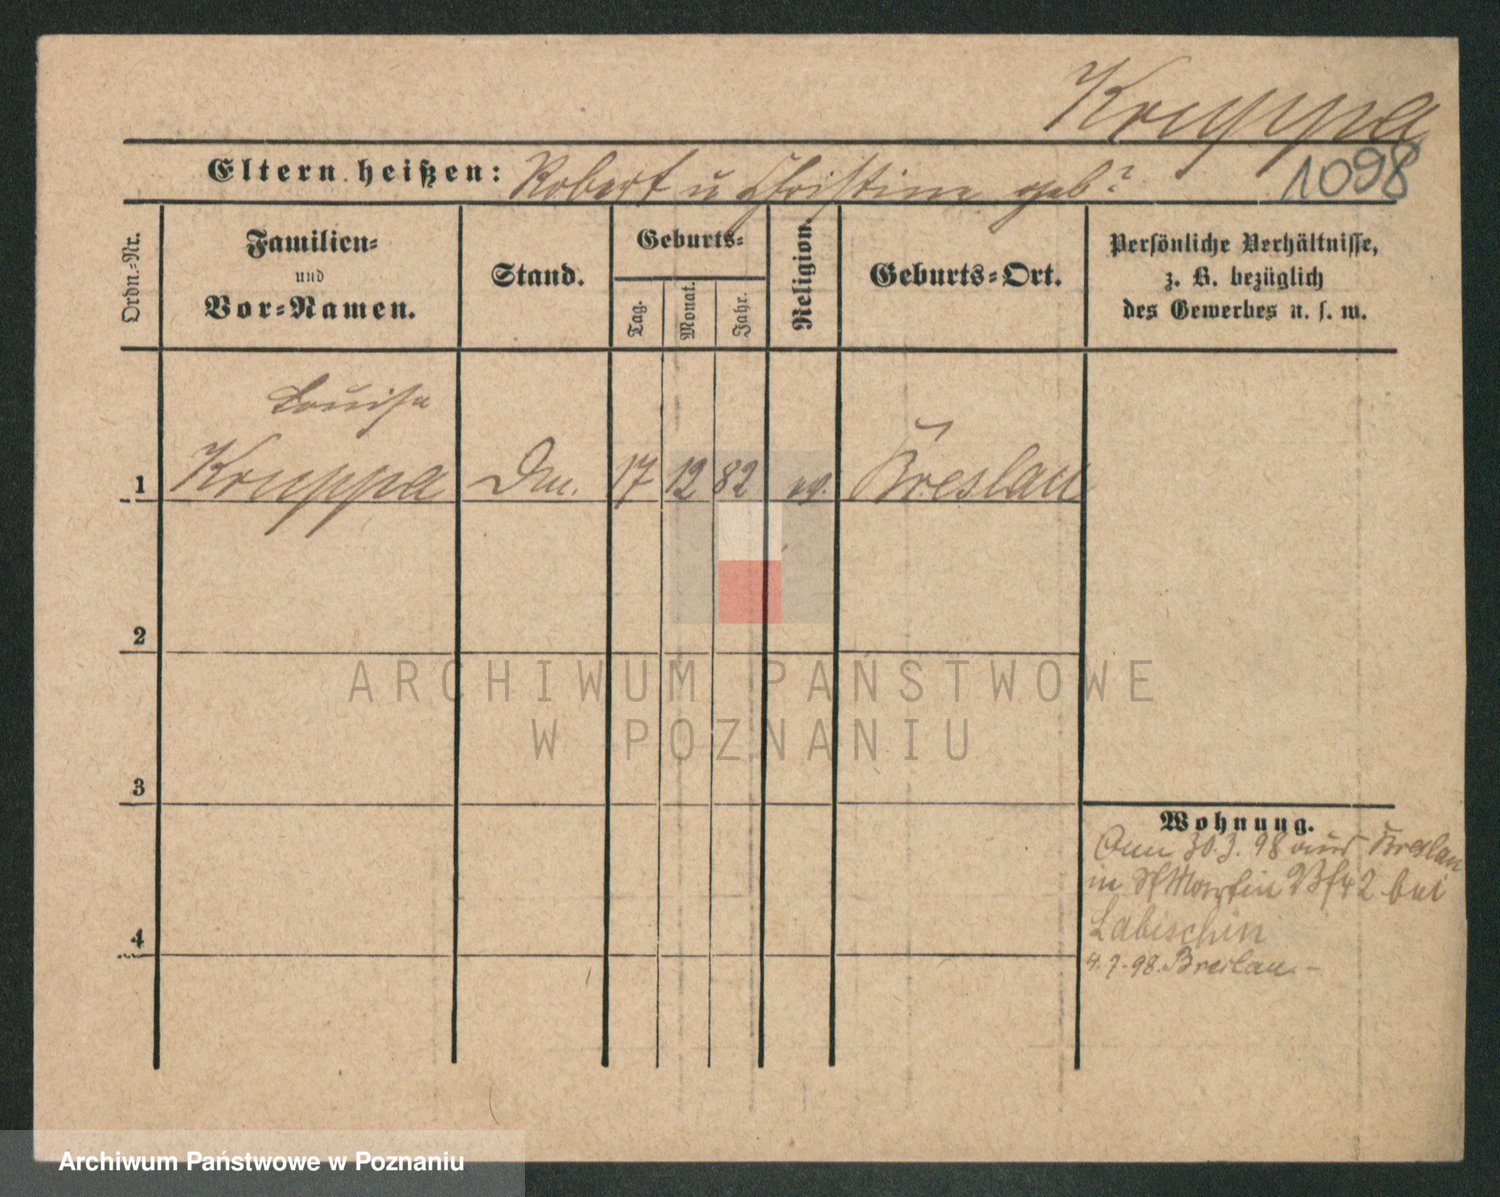 Kruppa
Eltern heißen: Robert u Christine geb?
1098
Ordn.-Nr.
Familien-
und
Vor-Namen.
Stand.
Geburts-
Tag.
Monat.
Jahr.
Religion.
Geburts-Ort.
Persönliche Verhältnisse,
z. B. bezüglich
des Gewerbes u. s. w.
Louise
1 Kruppa 17 12 82 ev. Breslau
2
3
4
Wohnung.
30.3.98 aus Breslau
in St Martin 42 bei
Labischin
4.7.98. Breslau.-
ARCHIWUM PAŃSTWOWE
W POZNANIU
Archiwum Państwowe w Poznaniu